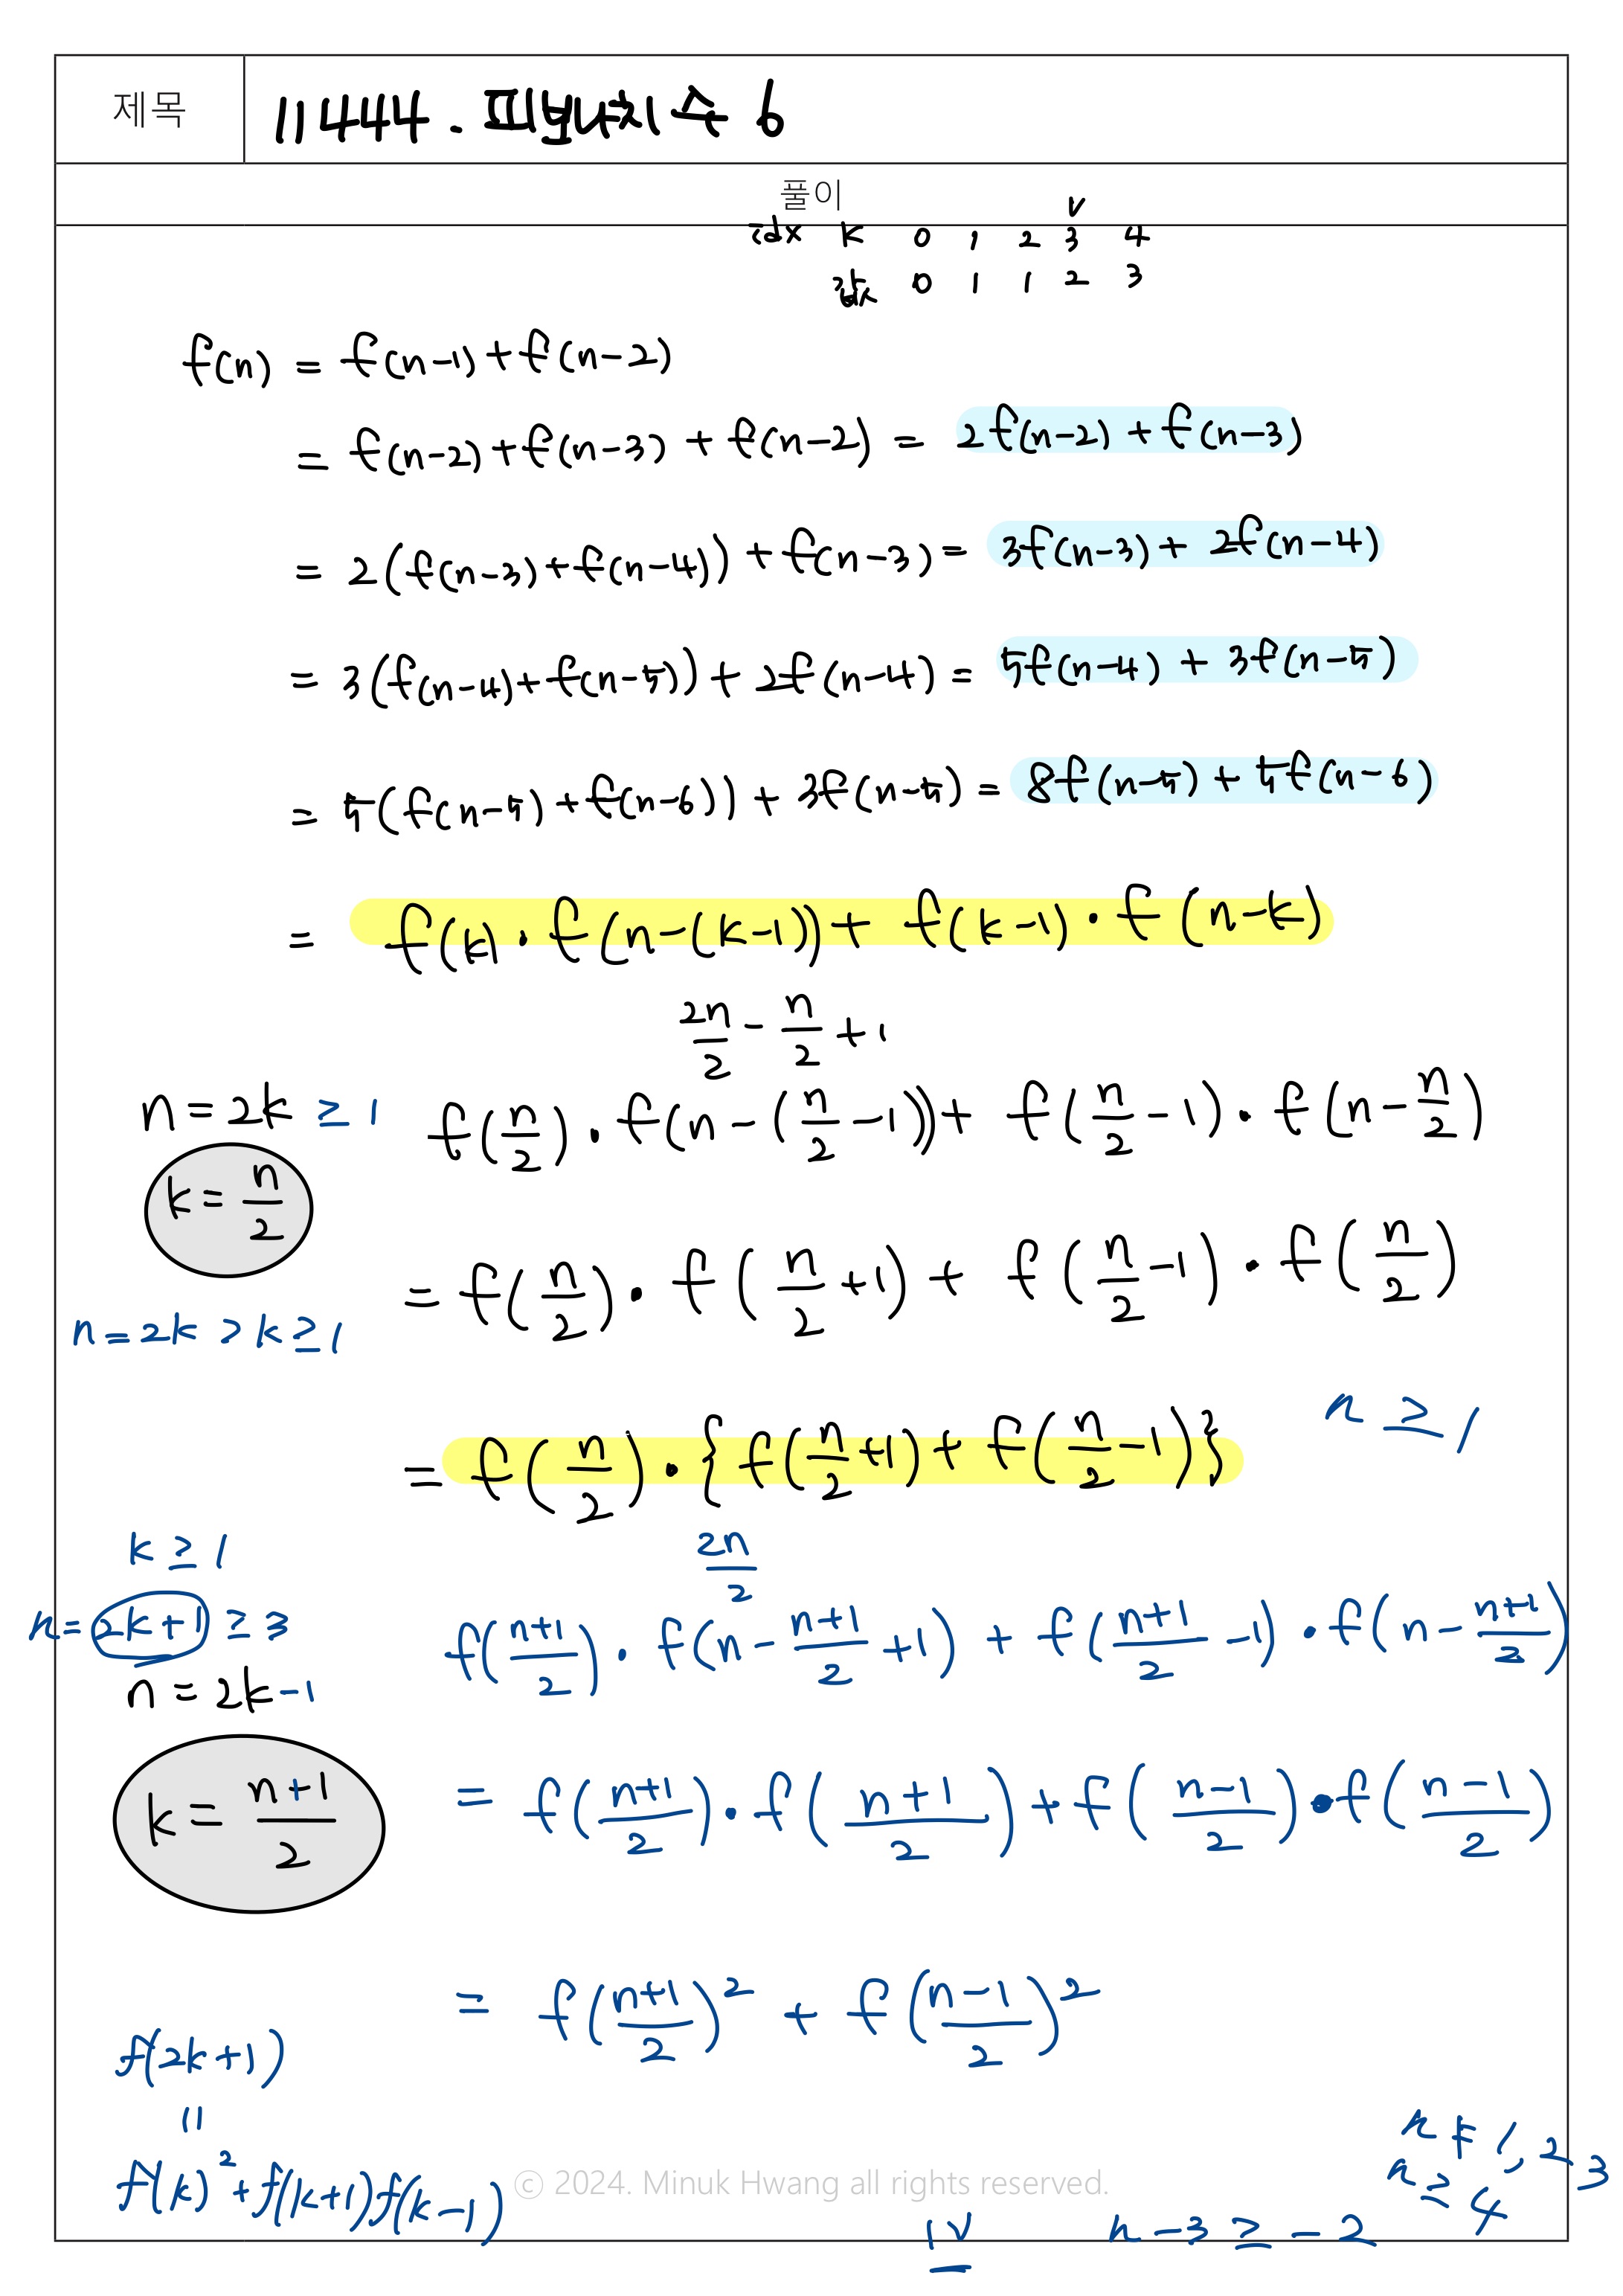 제목 11444. 피보나치 수 6
풀이
V
idx k 0 1 2 3 4
값 0 1 1 2 3
f(n) = f(n-1) + f(n-2)
= f(n-2) + f(n-3) + f(n-2) = 2f(n-2) + f(n-3)
= 2(f(n-3) + f(n-4)) + f(n-3) = 3f(n-3) + 2f(n-4)
= 3(f(n-4) + f(n-5)) + 2f(n-4) = 5f(n-4) + 3f(n-5)
= 5(f(n-5) + f(n-6)) + 3f(n-5) = 8f(n-5) + 5f(n-6)
= f(k) · f(n-(k-1)) + f(k-1) · f(n-k)
2n/2 - n/2 + 1
n = 2k ≥ 1 f(n/2) · f(n-(n/2-1)) + f(n/2-1) · f(n-n/2)
k = n/2
= f(n/2) · f(n/2+1) + f(n/2-1) · f(n/2)
n = 2k > k ≥ 1
= f(n/2) · {f(n/2+1) + f(n/2-1)} n ≥ 1
k ≥ 1 2n/2
n = 2k+1 ≥ 3 f((n+1)/2) · f(n-(n+1)/2+1) + f((n+1)/2-1) · f(n-(n+1)/2)
n = 2k-1
k = (n+1)/2 = f((n+1)/2) · f((n+1)/2) + f((n-1)/2) · f((n-1)/2)
= f((n+1)/2)² + f((n-1)/2)²
f(2k+1)
=
f(k)² + f(k+1)f(k-1)
n ≠ 1, 2, 3
n ≥ 4
© 2024. Minuk Hwang all rights reserved.
n-3 ≥ -2